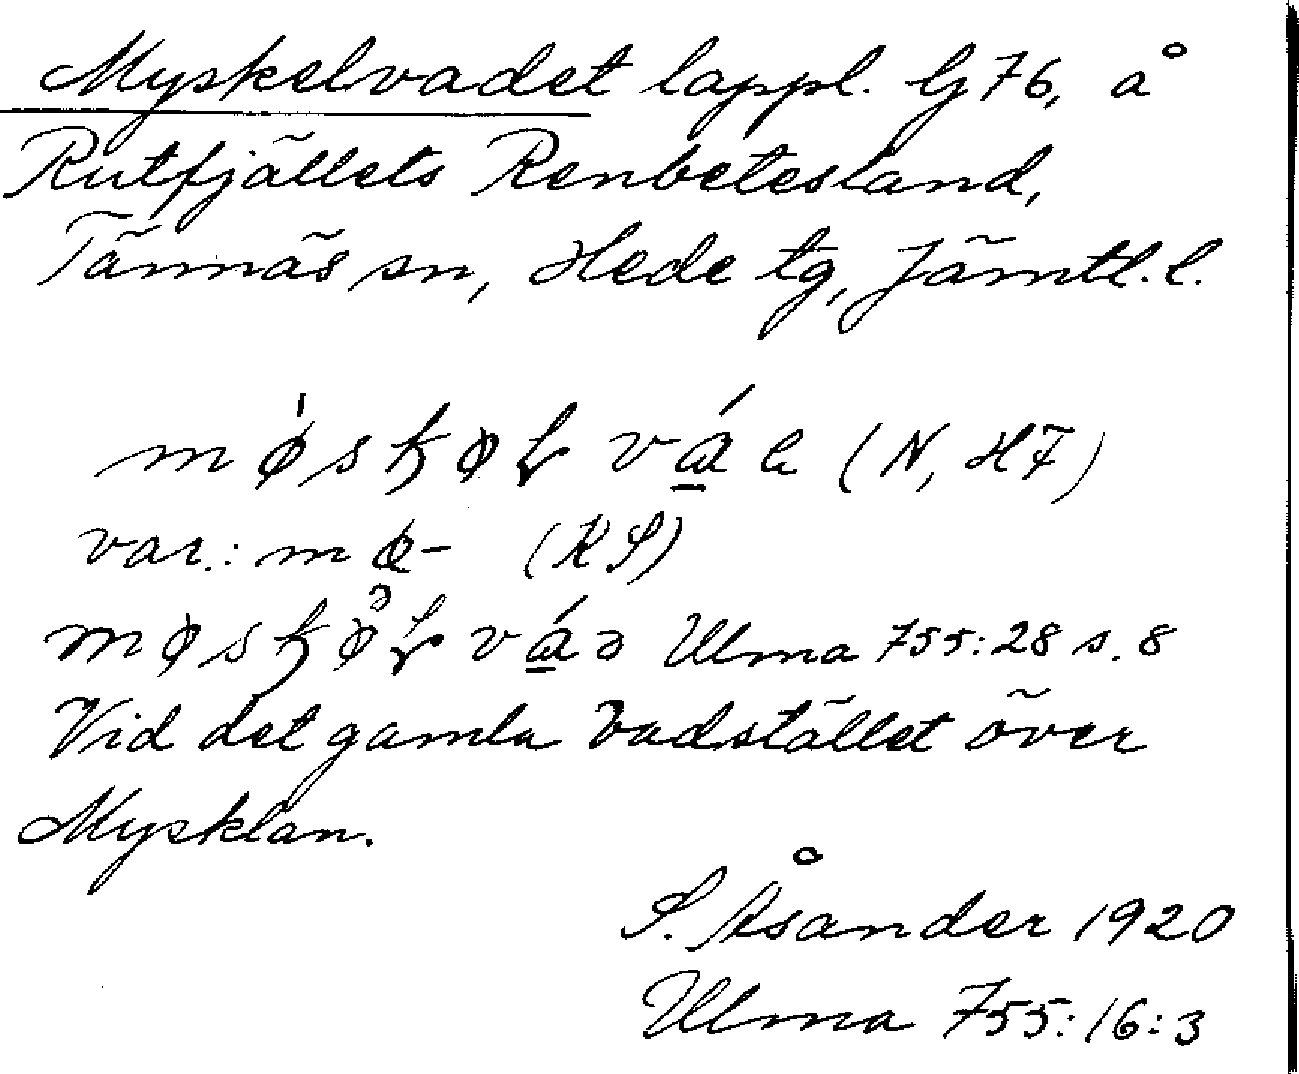 Myskelvadet lappl. G 76, å
Rutfjällets Renbetesland,
Tännäs sn, Hede tg, Jämtl. l.
(N, HF)
var.: mø- (KS)
Ulma 755:28 s. 8
Vid det gamla vadstället över
Mysklan.
S. Åsander 1920
Ulma 755:16:3